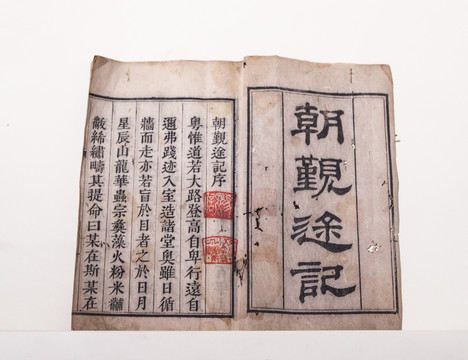 朝覲途記
朝覲途記序
粵惟道若大路登高自卑行遠自
邇弗踐迹入室造諸堂奧雖日循
牆而走亦若盲於目者之於日月
星辰山龍華蟲宗彝藻火粉米黼
黻絺繡疇其提命曰某在斯某在